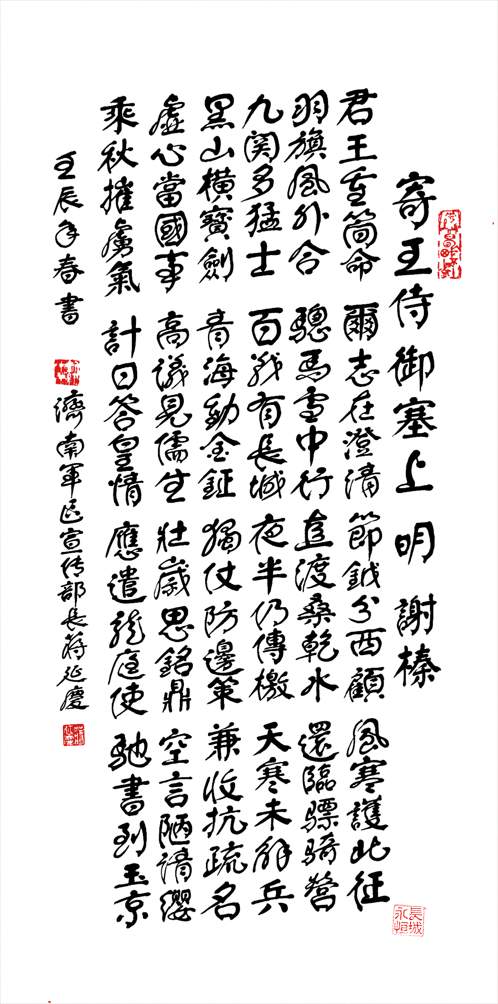 寄王侍御塞上 明 謝榛
君王重簡命 爾志在澄清 節鉞分西顧 風寒護北征
羽旗風外合 驄馬雪中行 直渡桑乾水 還臨驃騎營
九関多猛士 百战有長城 夜半仍傳檄 天寒未解兵
黑山橫寶劍 青海動金鉦 獨仗防邊策 兼收抗疏名
虛心當國事 高議見儒生 壯歲思銘鼎 空言陋請纓
乘秋摧虜氣 計日答皇情 應遣龍庭使 馳書到玉京
壬辰年春書 濟南軍区宣传部長蔣延慶
長城永恒